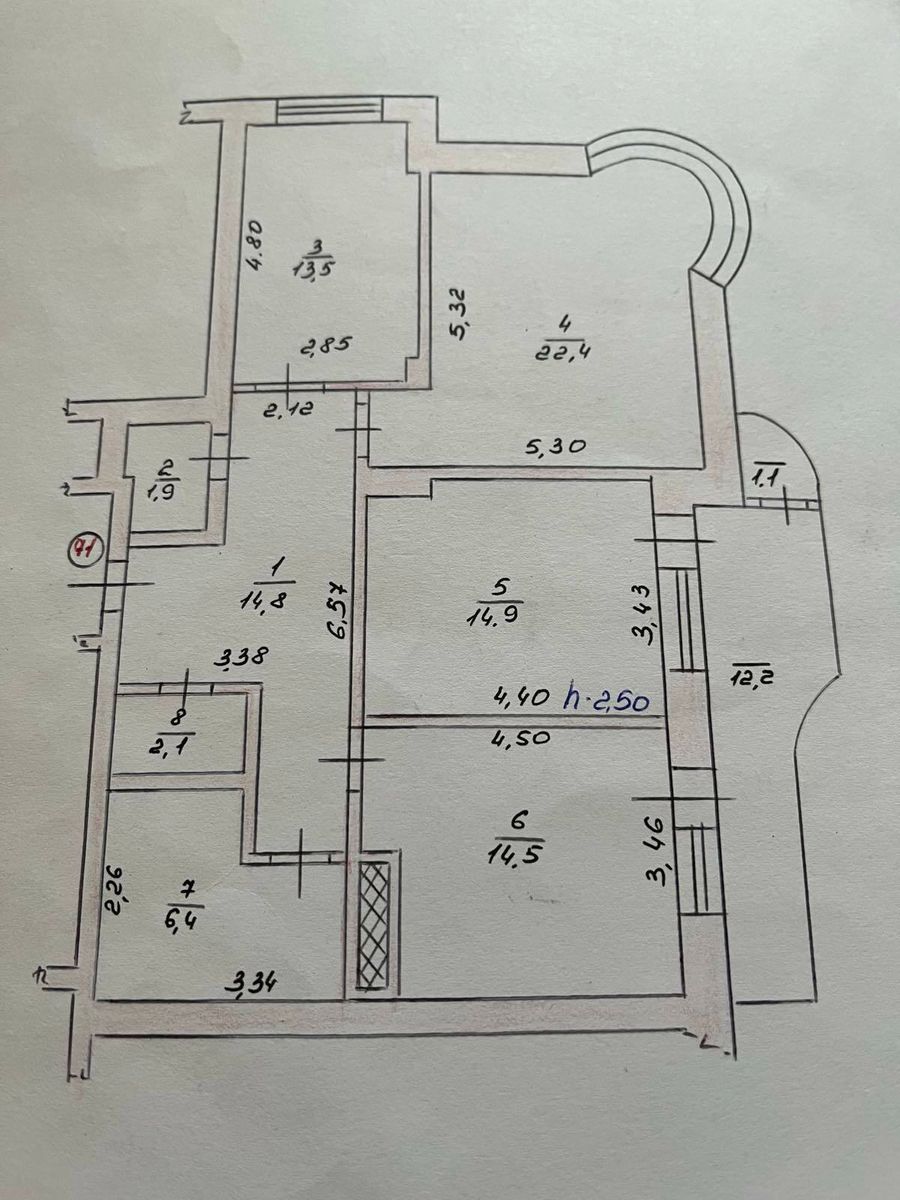 4.80
3
13,5
2,85
5,32
4
22,4
2,12
5,30
2
1,9
1.1
71
1
14,8
6,57
5
14.9
3,43
3,38
4,40 h-2,50
12,2
8
2,1
4,50
6
14,5
3,46
2,26
7
6,4
3,34